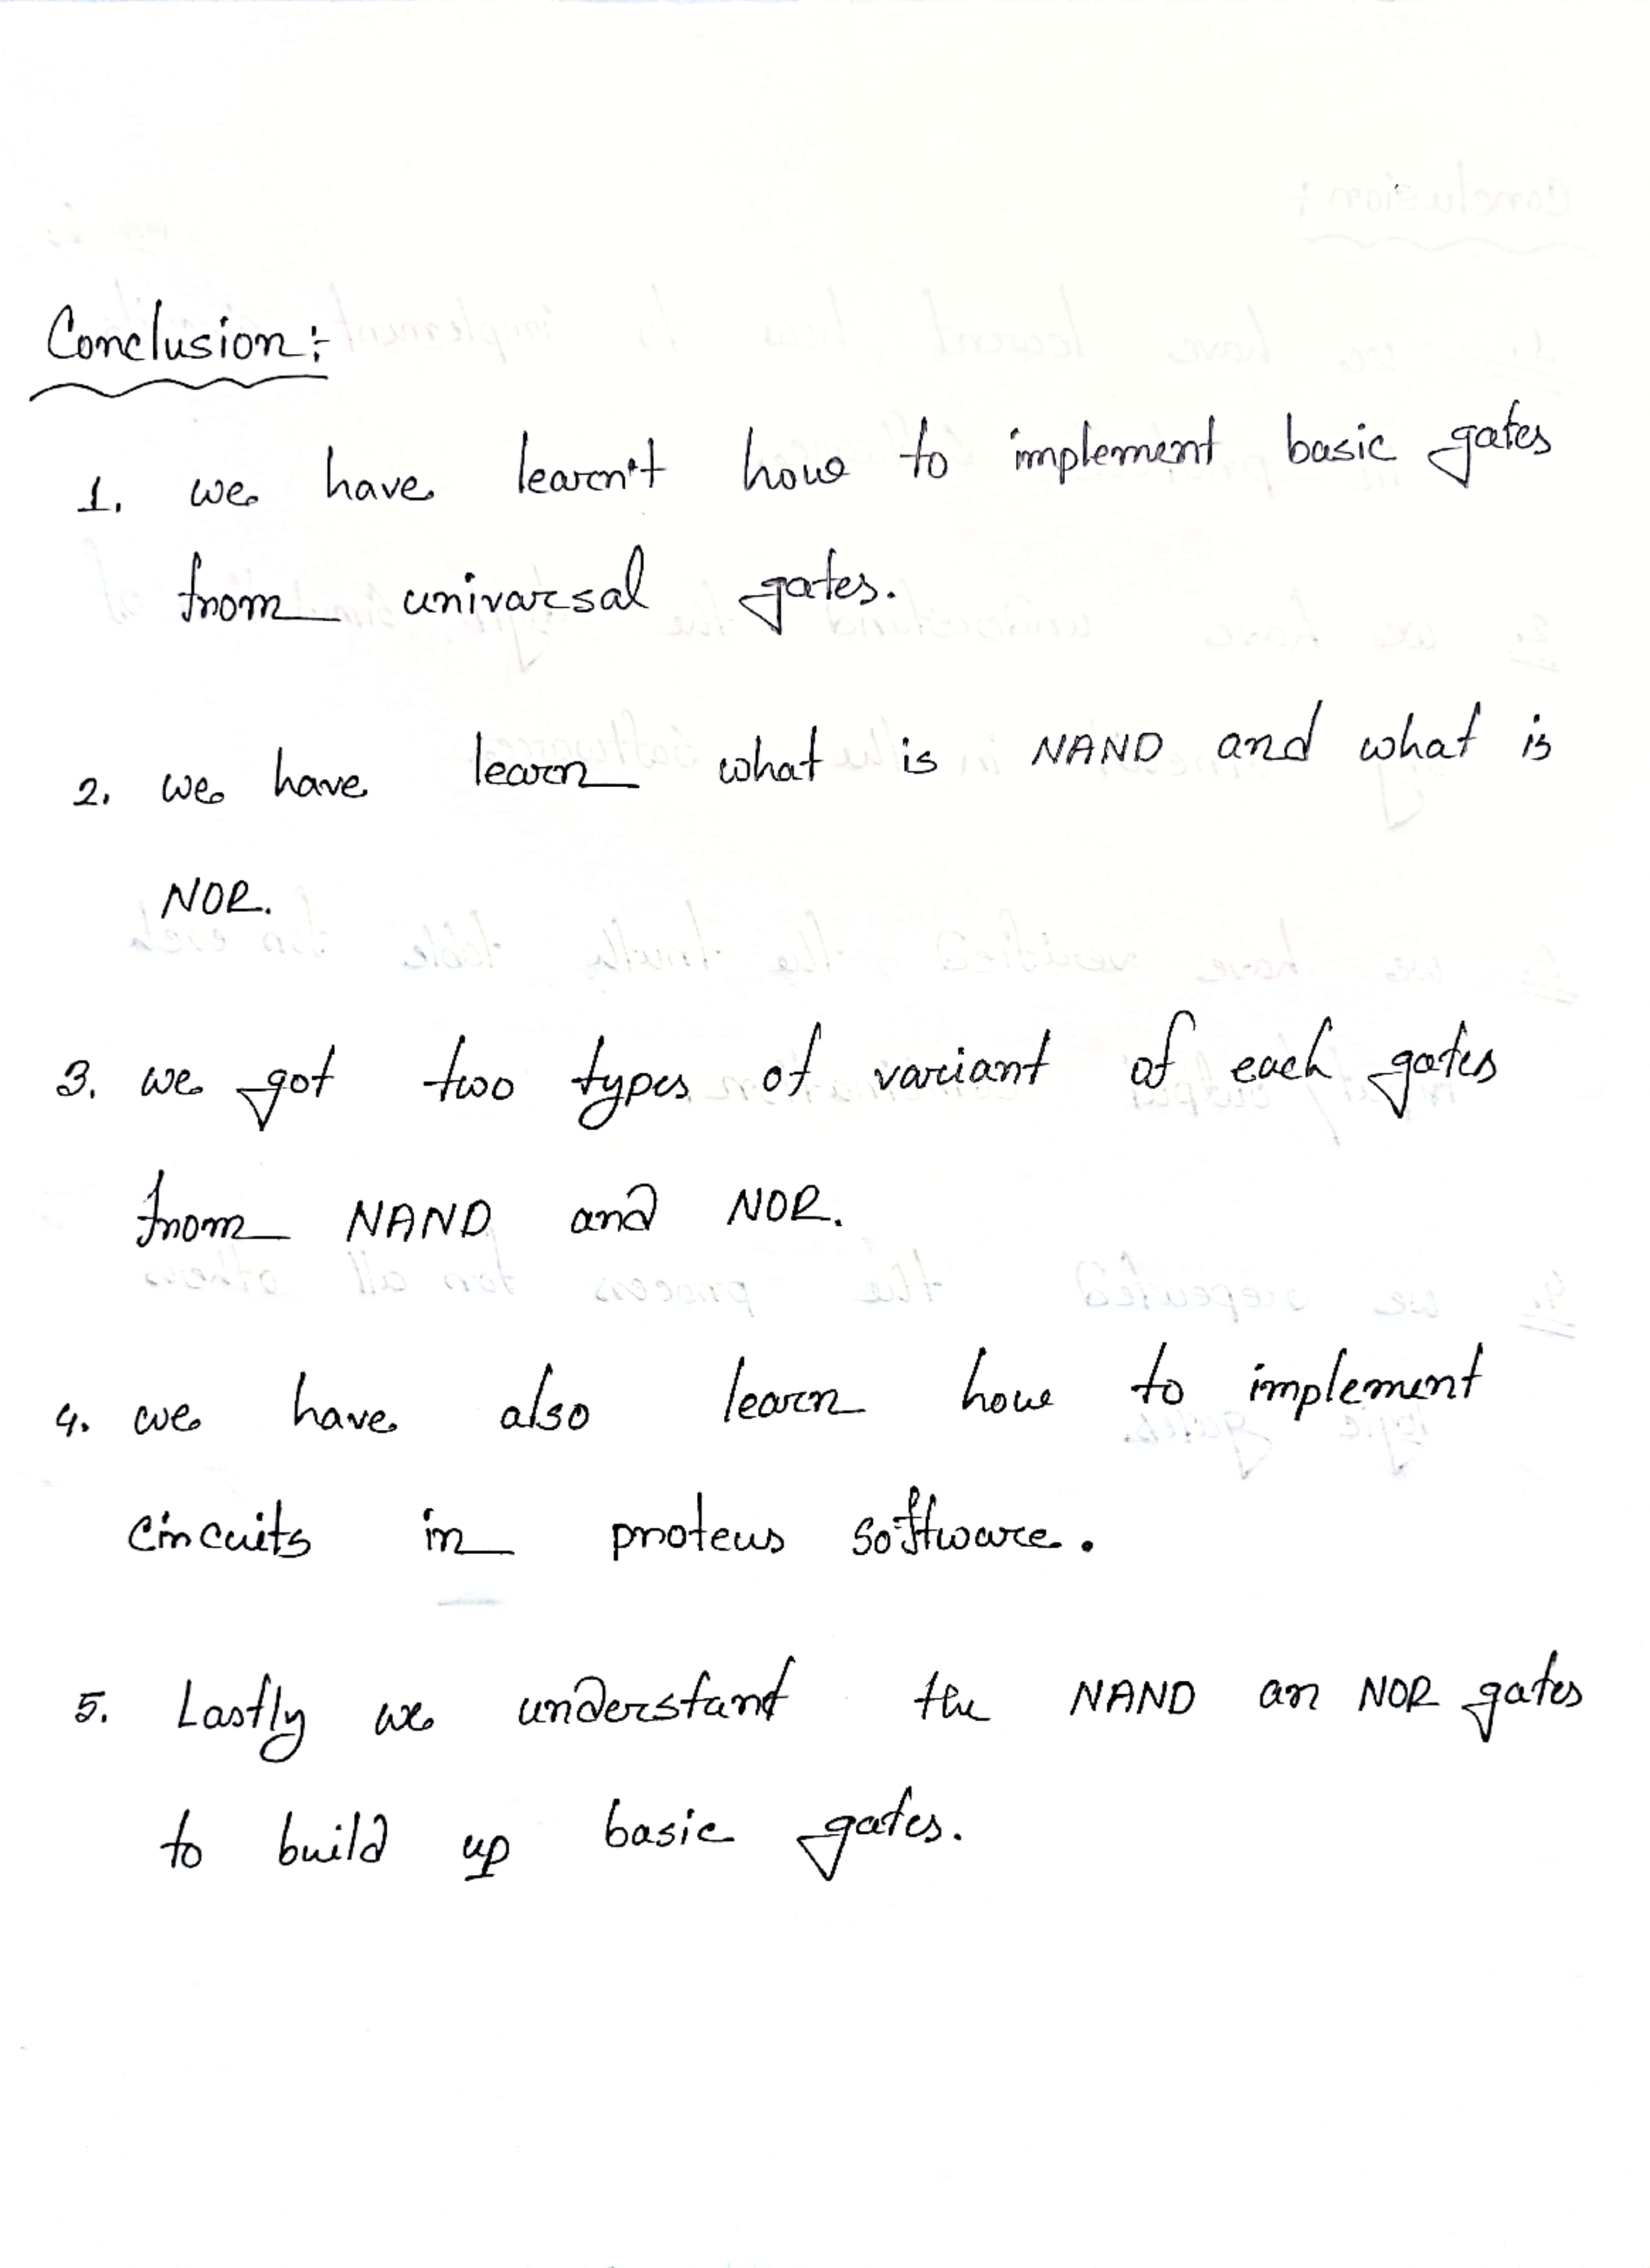 Conclusion:
1. we have learn't how to implement basic gates
from univarsal gates.
2. we have learn what is NAND and what is
NOR.
3. we got two types of variant of each gates
from NAND and NOR.
4. we have also learn how to implement
circuits in proteus software.
5. Lastly we understant the NAND an NOR gates
to build up basic gates.